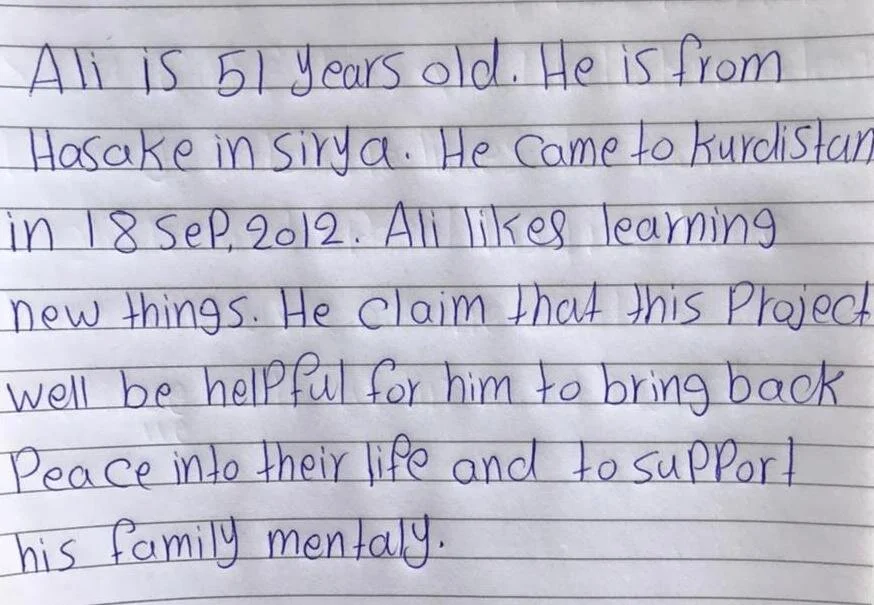 Ali is 51 years old. He is from
Hasake in sirya. He came to kurdistan
in 18 sep, 2012. Ali likes learning
new things. He claim that this Project
well be helpful for him to bring back
Peace into their life and to support
his family mentaly.